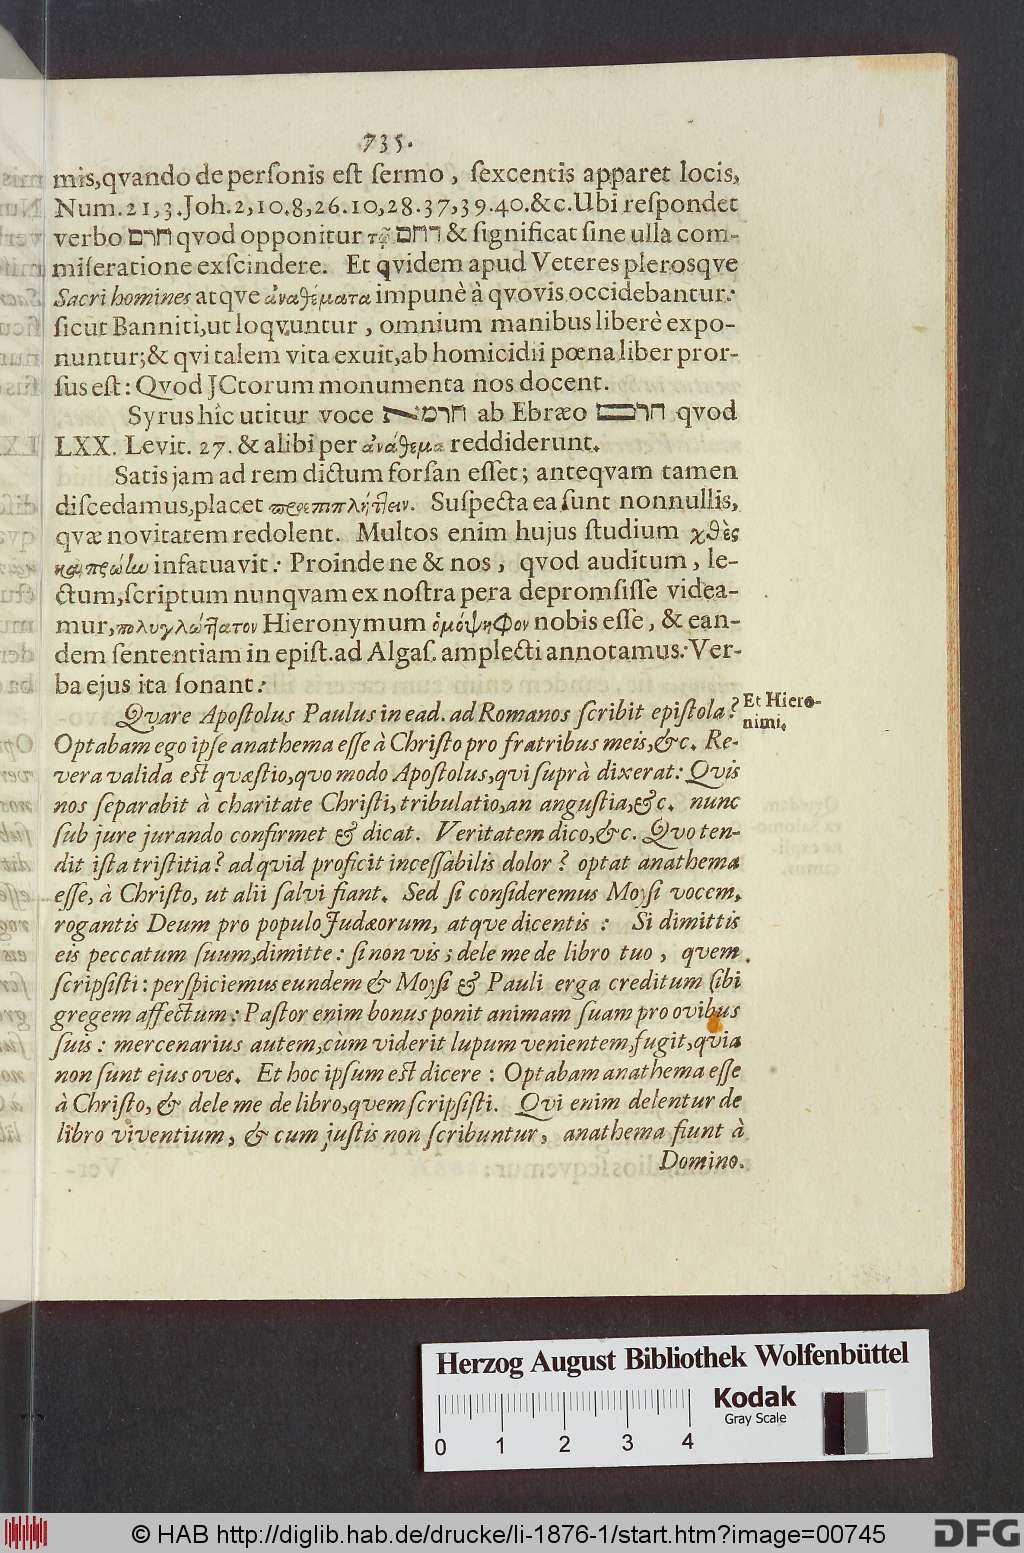 735.
mis, qvando de personis est sermo, sexcentis apparet locis,
Num. 21, 3. Joh. 2, 10. 8, 26. 10, 28. 37, 39. 40. &c. Ubi respondet
verbo חרם qvod opponitur τῷ רחם & significat sine ulla com-
miseratione exscindere. Et qvidem apud Veteres plerosqve
Sacri homines atqve ἀναθέματα impunè à qvovis occidebantur:
sicut Banniti, ut loqvuntur, omnium manibus liberè expo-
nuntur; & qvi talem vita exuit, ab homicidii pœna liber pror-
sus est: Qvod JCtorum monumenta nos docent.
Syrus hic utitur voce חרמא ab Ebræo חרם qvod
LXX. Levit. 27. & alibi per ἀνάθεμα reddiderunt.
Satis jam ad rem dictum forsan esset; anteqvam tamen
discedamus, placet Suspecta ea sunt nonnullis,
qvæ novitatem redolent. Multos enim hujus studium χθὲς
infatuavit: Proinde ne & nos, qvod auditum, le-
ctum, scriptum nunqvam ex nostra pera depromsisse videa-
mur, πολυγλώττατον Hieronymum ὁμόψηφον nobis esse, & ean-
dem sententiam in epist. ad Algas. amplecti annotamus: Ver-
ba ejus ita sonant:
Qvare Apostolus Paulus in ead. ad Romanos scribit epistola?
Et Hiero-
nimi.
Optabam ego ipse anathema esse à Christo pro fratribus meis, &c. Re-
vera valida est qvæstio, qvo modo Apostolus, qvi suprà dixerat: Qvis
nos separabit à charitate Christi, tribulatio, an angustia, &c. nunc
sub jure jurando confirmet & dicat. Veritatem dico, &c. Qvo ten-
dit ista tristitia? ad qvid proficit incessabilis dolor? optat anathema
esse, à Christo, ut alii salvi fiant. Sed si consideremus Moysi vocem,
rogantis Deum pro populo Judæorum, atqve dicentis: Si dimittis
eis peccatum suum, dimitte: si non vis; dele me de libro tuo, qvem
scripsisti: perspiciemus eundem & Moysi & Pauli erga creditum sibi
gregem affectum: Pastor enim bonus ponit animam suam pro ovibus
suis: mercenarius autem, cùm viderit lupum venientem, fugit, qvia
non sunt ejus oves. Et hoc ipsum est dicere: Optabam anathema esse
à Christo, & dele me de libro, qvem scripsisti. Qvi enim delentur de
libro viventium, & cum justis non scribuntur, anathema fiunt à
Domino.
Herzog August Bibliothek Wolfenbüttel
Kodak
Gray Scale
0 1 2 3 4
© HAB http://diglib.hab.de/drucke/li-1876-1/start.htm?image=00745
DFG